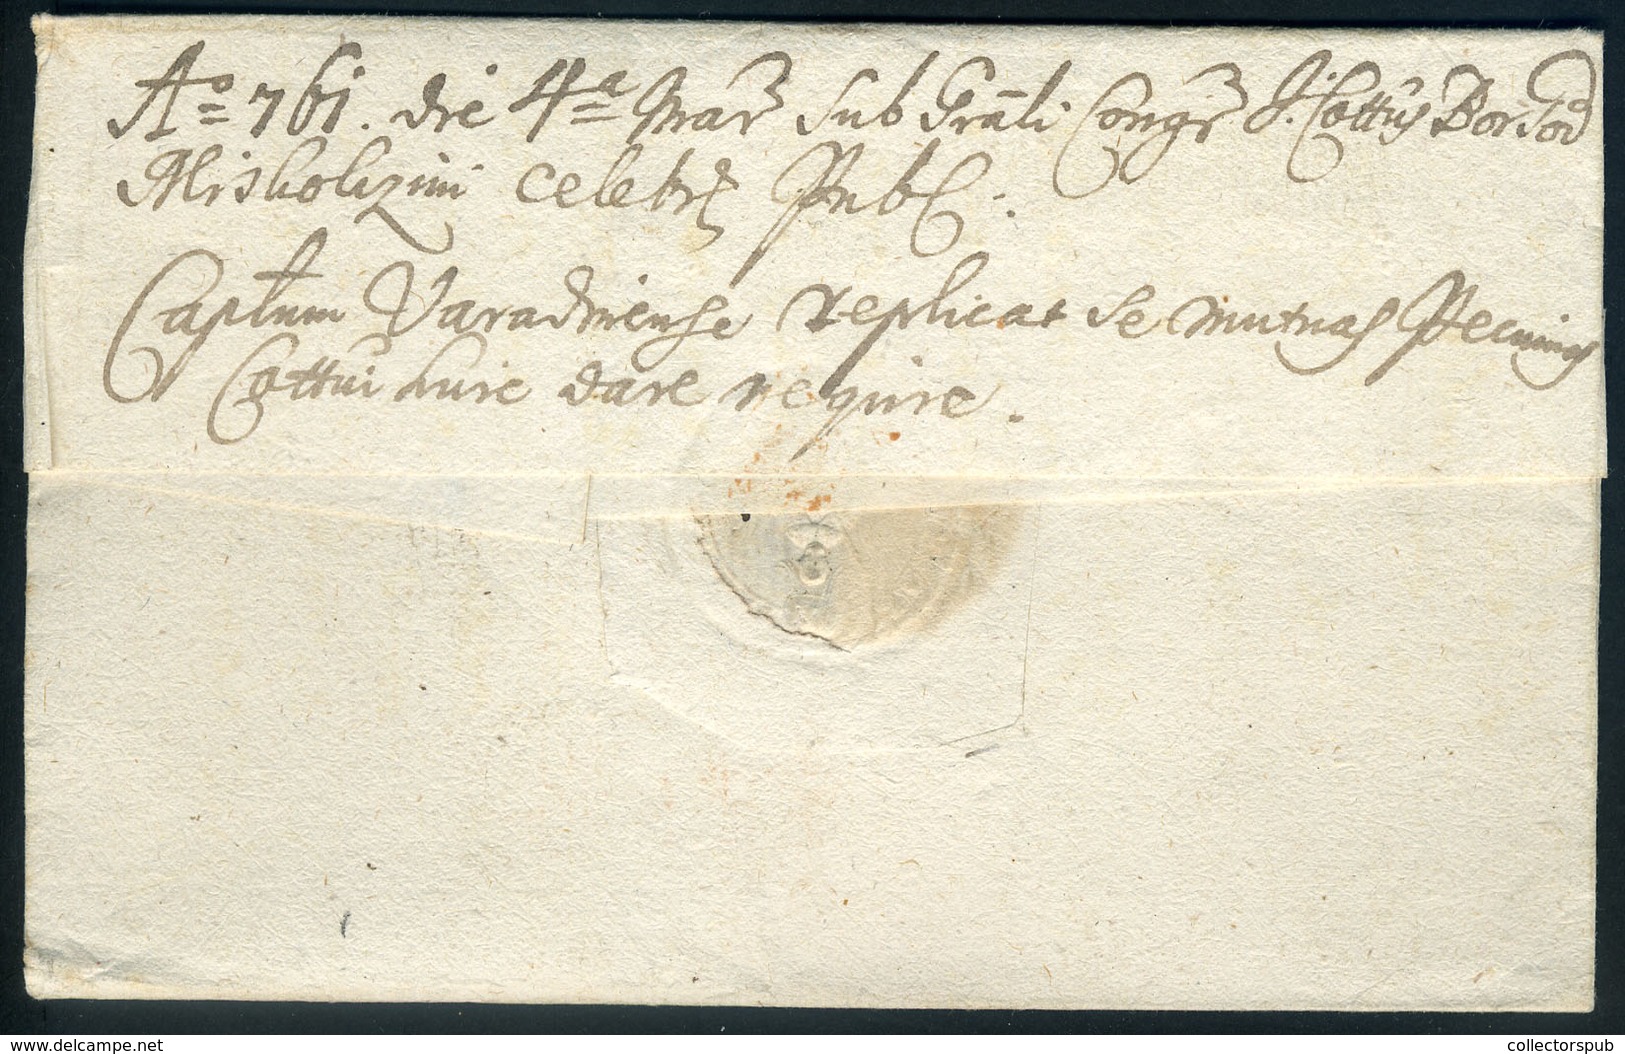 Aº 761. die 4ª Mar̃ sub Grãli Congr̃ I. Cottũs Borsod
Miskolczini celebr̃ Publ:
Captlum Varadinense replicat se mutuas Pecunias
Cottui huic dare nequire.
delcampe.net
collectorspub